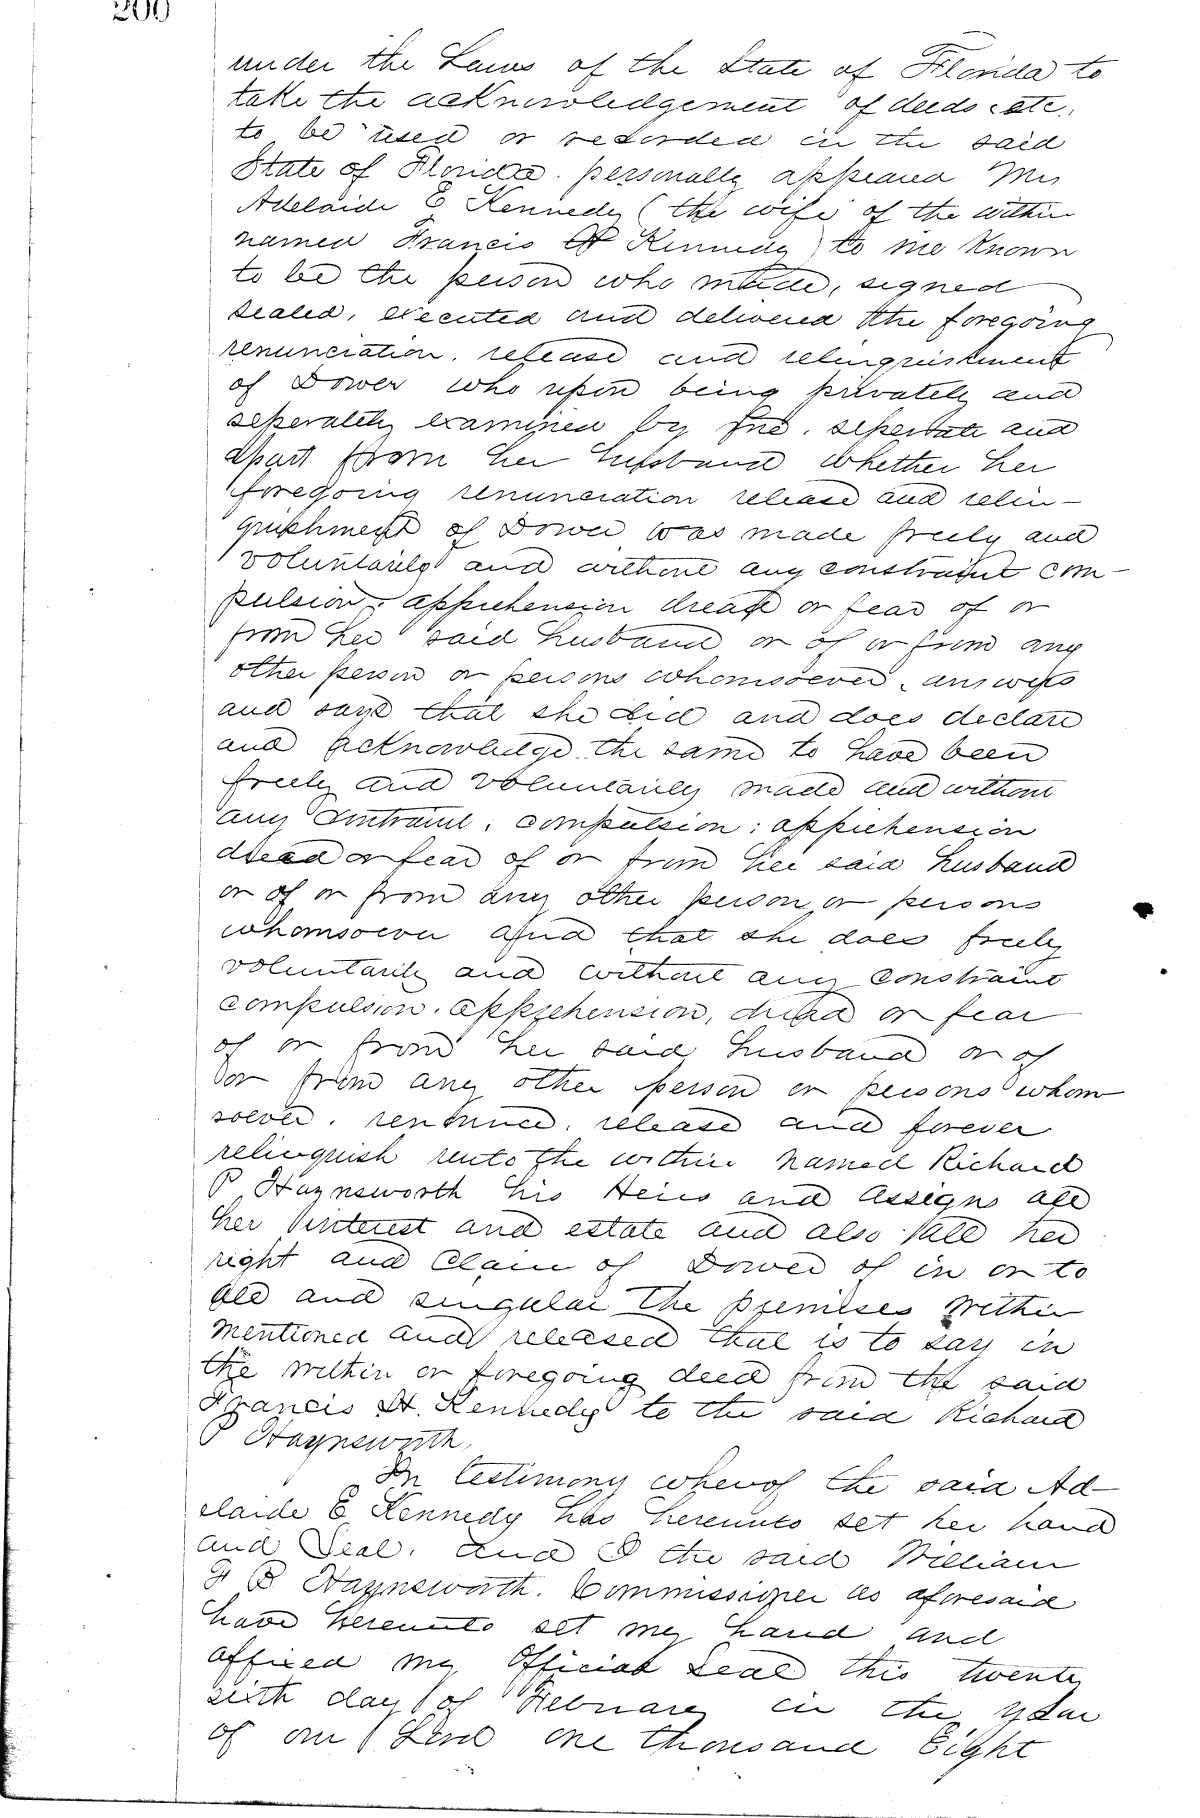 200
under the Laws of the State of Florida to
take the acknowledgement of deeds etc.
to be used or recorded in the said
State of Florida. personally appeared Mrs
Adelaide E Kennedy (the wife of the within
named Francis H Kennedy) to me Known
to be the person who made, signed
sealed, executed and delivered the foregoing
renunciation. release and relinquishment
of Dower who upon being privately and
seperately examined by me. seperate and
apart from her husband whether her
foregoing renunciation release and relin-
quishment of Dower was made freely and
voluntarily and without any constraint com-
pulsion. apprehension dread or fear of or
from her said husband or of or from any
other person or persons whomsoever. answers
and says that she did and does declare
and acknowledge the same to have been
freely and voluntarily made and without
any contraint. compulsion: apprehension
dread or fear of or from her said husband
or of or from any other person or persons
whomsoever and that she does freely
voluntarily and without any constraint
compulsion. apprehension, dread or fear
of or from her said husband or of
or from any other person or persons whom
soever. renounce. release and forever
relinquish unto the within named Richard
P Haynsworth his Heirs and Assigns all
her interest and estate and also all her
right and Claim of Dower of in or to
all and singular the premises within
mentioned and released that is to say in
the within or foregoing deed from the said
Francis H. Kennedy to the said Richard
P Haynsworth.
In testimony wherof the said Ad-
elaide E Kennedy has hereunto set her hand
and Seal. And I the said William
F B Haynsworth. Commissioner as aforesaid
have hereunto set my hand and
affixed my Official Seal this twenty
sixth day of Februarey in the year
of our Lord one thousand Eight